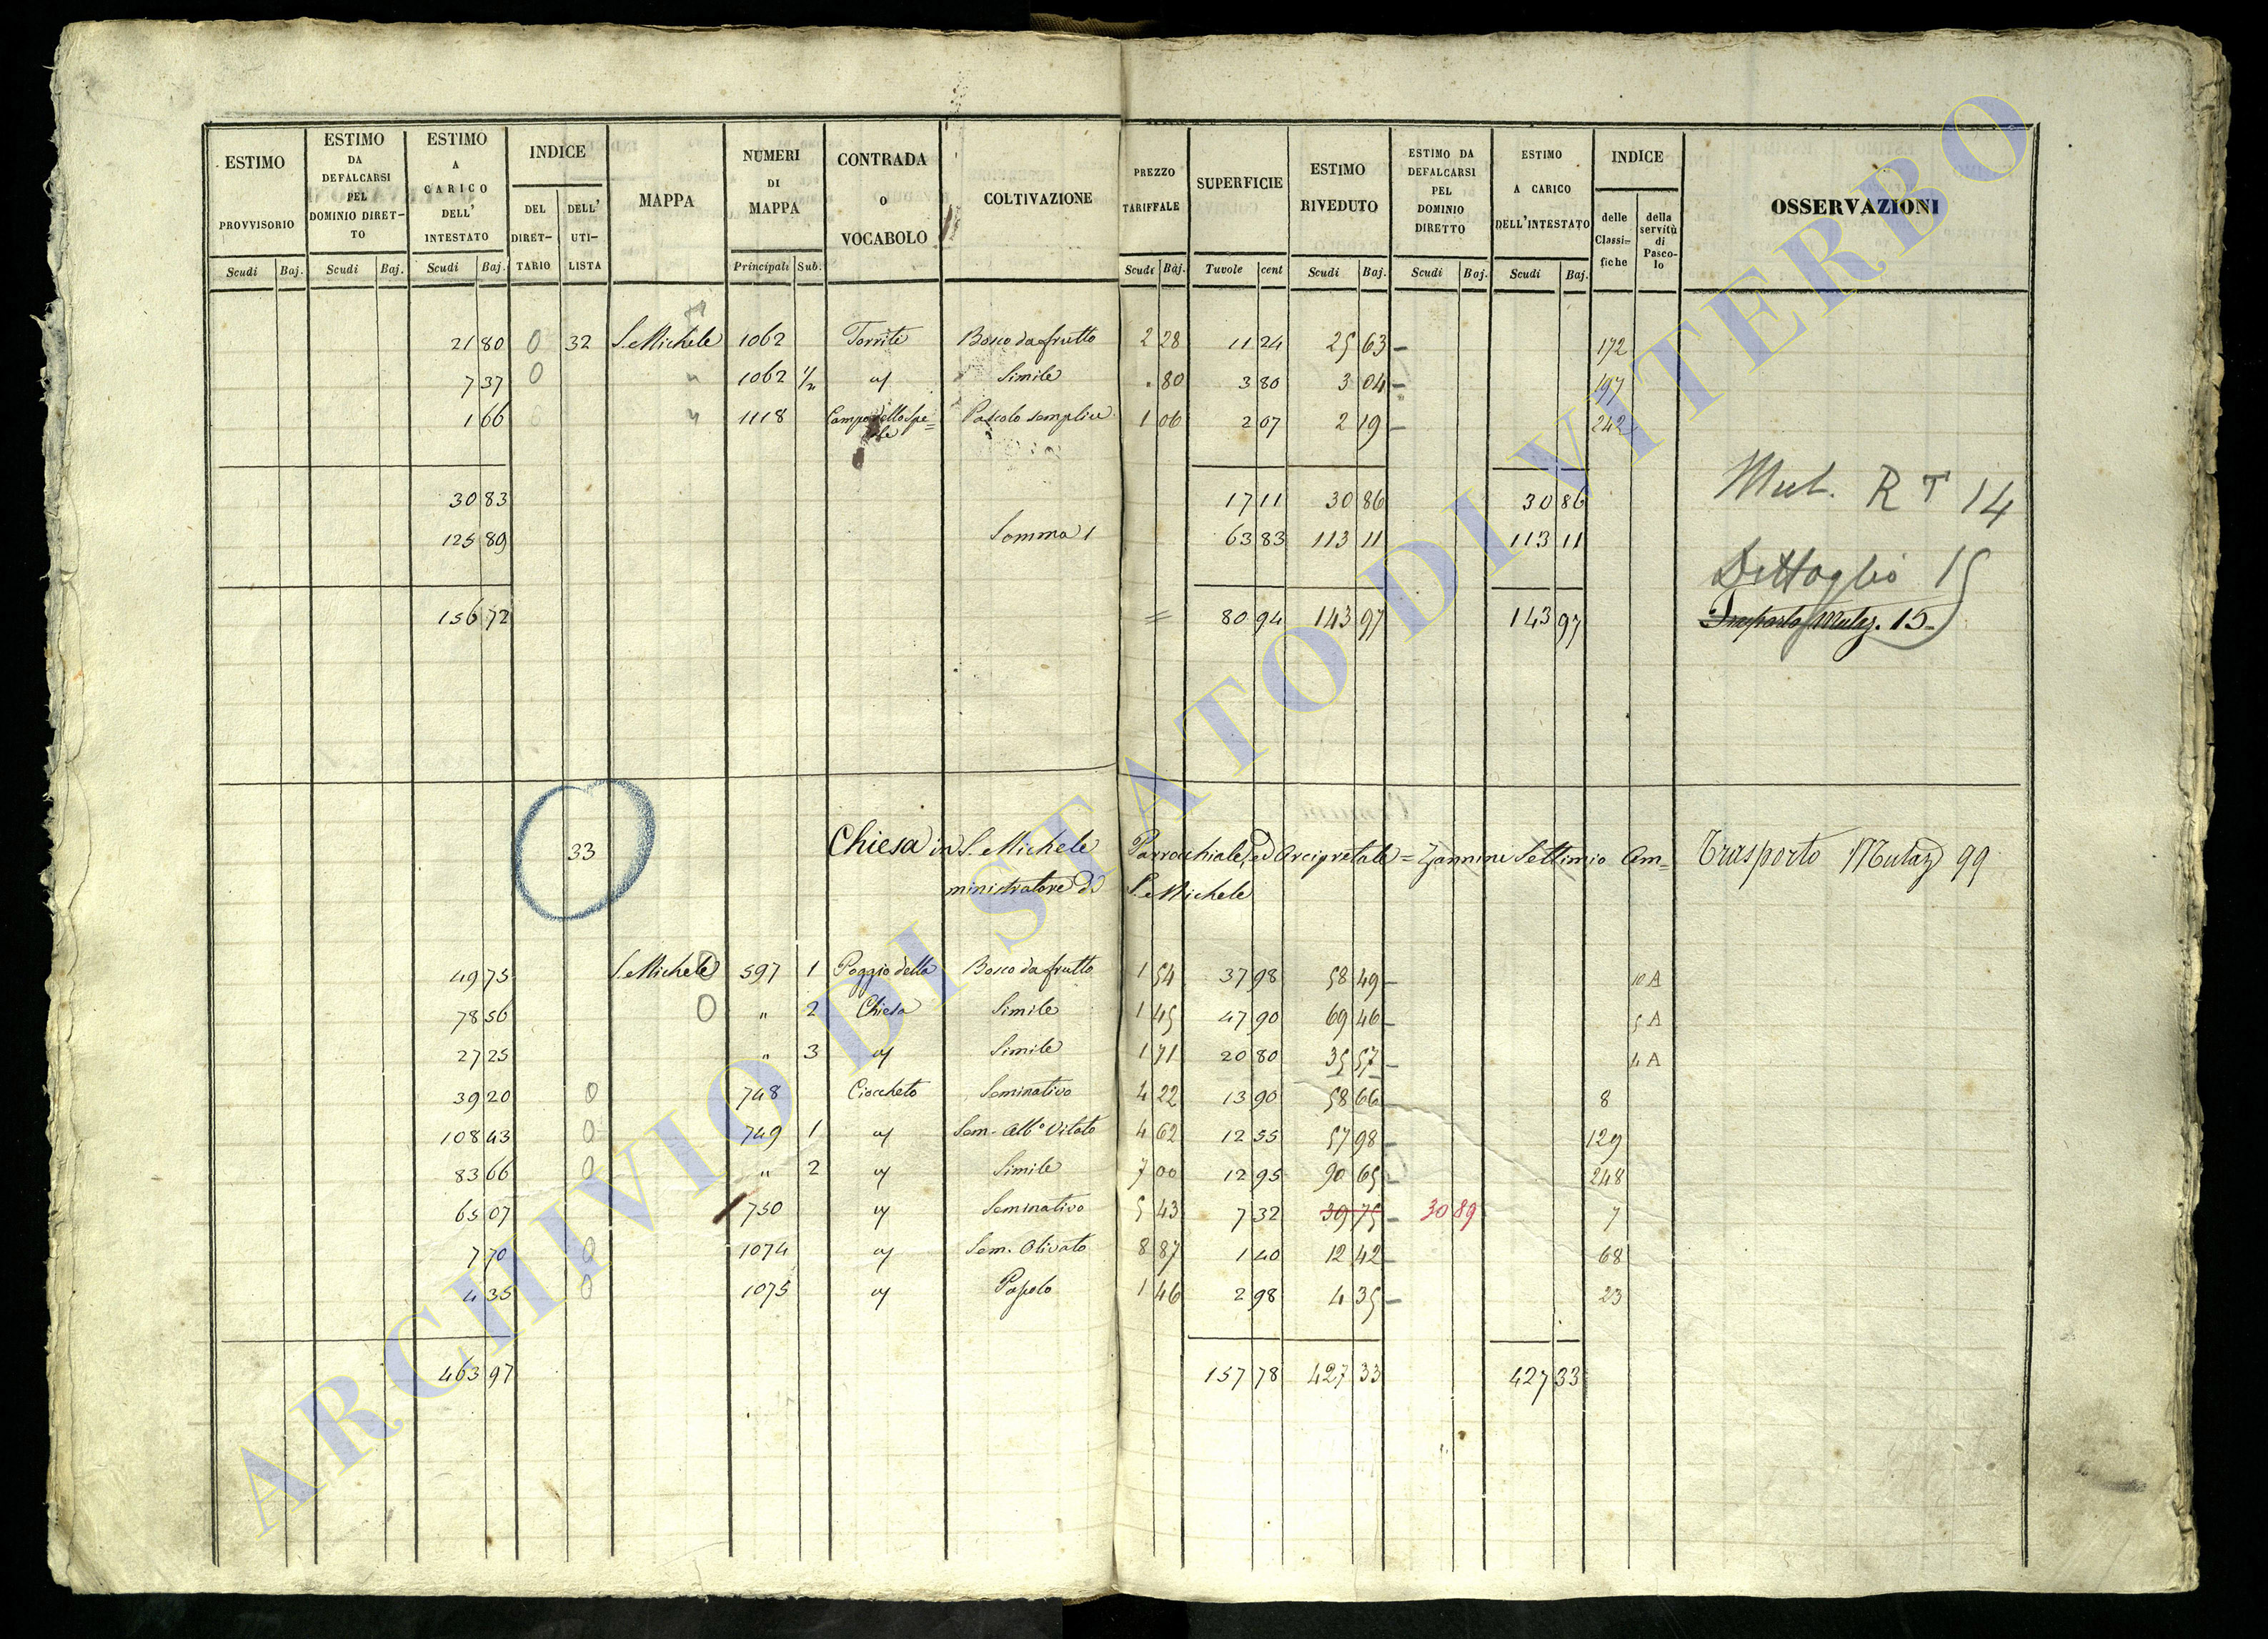 ESTIMO PROVVISORIO
ESTIMO DA DEFALCARSI PEL DOMINIO DIRET-TO
ESTIMO A CARICO DELL' INTESTATO
INDICE
DEL DIRET-TARIO
DELL' UTI-LISTA
MAPPA
NUMERI DI MAPPA
CONTRADA O VOCABOLO
COLTIVAZIONE
PREZZO TARIFFALE
SUPERFICIE
ESTIMO RIVEDUTO
ESTIMO DA DEFALCARSI PEL DOMINIO DIRETTO
ESTIMO A CARICO DELL'INTESTATO
INDICE
delle Classi-fiche
della servitù di Pasco-lo
OSSERVAZIONI
Scudi Baj. Scudi Baj. Scudi Baj. Principali Sub. Scudi Baj. Tavole cent Scudi Baj. Scudi Baj. Scudi Baj.
21 80 0 32 S. Michele 1062 Torrite Bosco da frutto 2 28 11 24 25 63 172
7 37 0 " 1062 1/2 " Simile . 80 3 80 3 04 197
1 66 0 " 1118 Campo dello Spe= Pascolo semplice 1 06 2 07 2 19 242
30 83 17 11 30 86 30 86 Mut. R T 14
125 89 Somma 1 63 83 113 11 113 11
Dettaglio 15
156 72 = 80 94 143 97 143 97 Importo Mutaz. 15
33 Chiesa in S. Michele Parrocchiale, ed Arcipretale = Zannini Settimio Am= Trasporto Mutaz 99
ministratore di S. Michele
49 75 S. Michele 0 597 1 Poggio della Bosco da frutto 1 54 37 98 58 49 10 A
78 56 0 " 2 Chiesa Simile 1 45 47 90 69 46 5 A
27 25 " 3 " Simile 1 71 20 80 35 57 4 A
39 20 0 748 Ciocheto Seminativo 4 22 13 90 58 66 8
108 43 0 749 1 " Sem. Alb.o Vitato 4 62 12 55 57 98 129
83 66 0 " 2 " Simile 7 00 12 95 90 65 248
65 07 750 " Seminativo 5 43 7 32 39 75 30 89 7
7 70 0 1074 " Sem. Olivato 8 87 1 40 12 42 68
4 35 0 1075 " Pascolo 1 46 2 98 4 35 23
463 97 157 78 427 33 427 33
ARCHIVIO DI STATO DI VITERBO